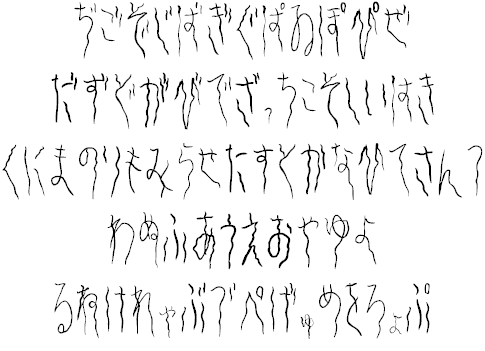 ぢごそじばぎぐぱゐぽぴぜ
だずぞがびでざっちこそしいはき
くにまのりもみらせたすとかなひてさん？
わぬふあうえおやゆよ
るねけれゃぶづぺげゅめをろょぷ